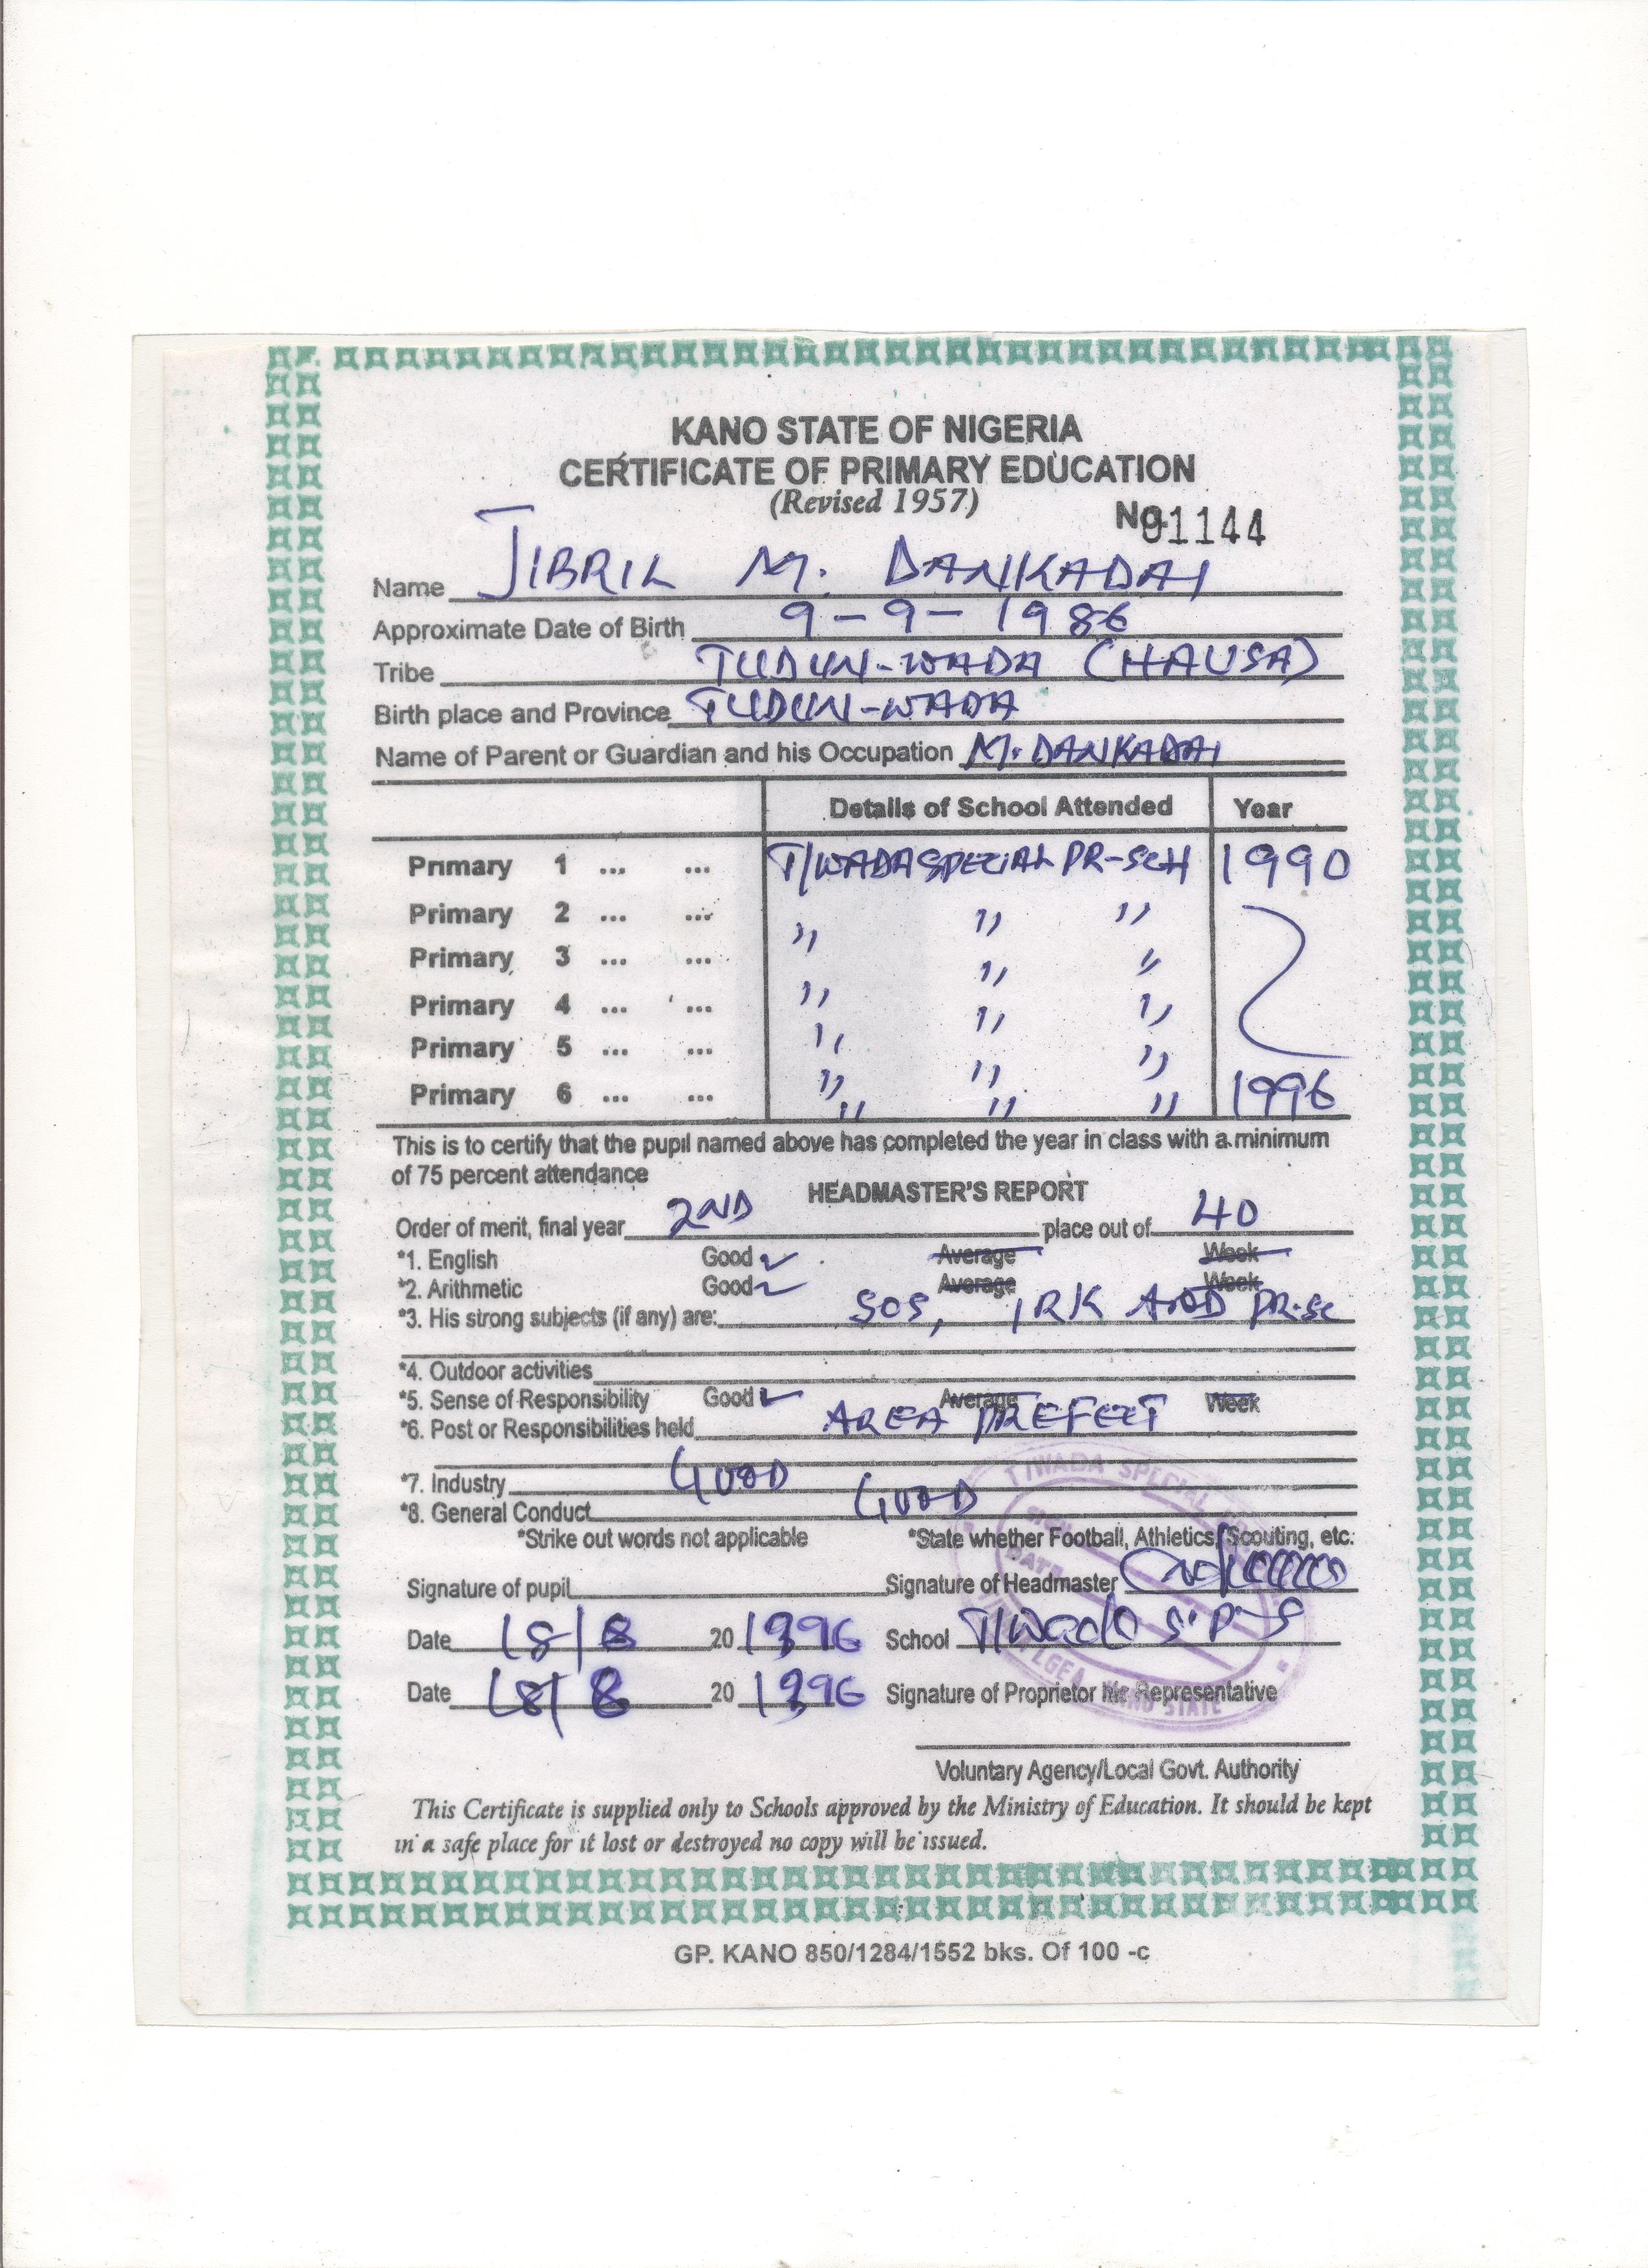 KANO STATE OF NIGERIA
CERTIFICATE OF PRIMARY EDUCATION
(Revised 1957)
No. 91144
Name JIBRIL M. DANKADAI
Approximate Date of Birth 9-9-1986
Tribe TUDUN-WADA (HAUSA)
Birth place and Province TUDUN-WADA
Name of Parent or Guardian and his Occupation M. DANKADAI
Details of School Attended Year
Primary 1 ... ... T/WADA SPECIAL PR-SCH 1990
Primary 2 ... ... ,, ,, ,,
Primary 3 ... ... ,, ,, ,,
Primary 4 ... ... ,, ,, ,,
Primary 5 ... ... ,, ,, ,,
Primary 6 ... ... ,, ,, ,, 1996
This is to certify that the pupil named above has completed the year in class with a minimum
of 75 percent attendance
HEADMASTER'S REPORT
Order of merit, final year 2ND place out of 40
*1. English Good Average Week
*2. Arithmetic Good Average Week
*3. His strong subjects (if any) are: SOS, IRK AND PR-SC
*4. Outdoor activities
*5. Sense of Responsibility Good Average Week
*6. Post or Responsibilities held AREA PREFECT
*7. Industry GOOD
*8. General Conduct GOOD
*Strike out words not applicable *State whether Football, Athletics, Scouting, etc.
Signature of pupil Signature of Headmaster
Date 18/8 20 1996 School T/Wada S.P.S
Date 18/8 20 1996 Signature of Proprietor Representative
T/WADA SPECIAL
LGEA KANO STATE
Voluntary Agency/Local Govt. Authority
This Certificate is supplied only to Schools approved by the Ministry of Education. It should be kept
in a safe place for it lost or destroyed no copy will be issued.
GP. KANO 850/1284/1552 bks. Of 100 -c